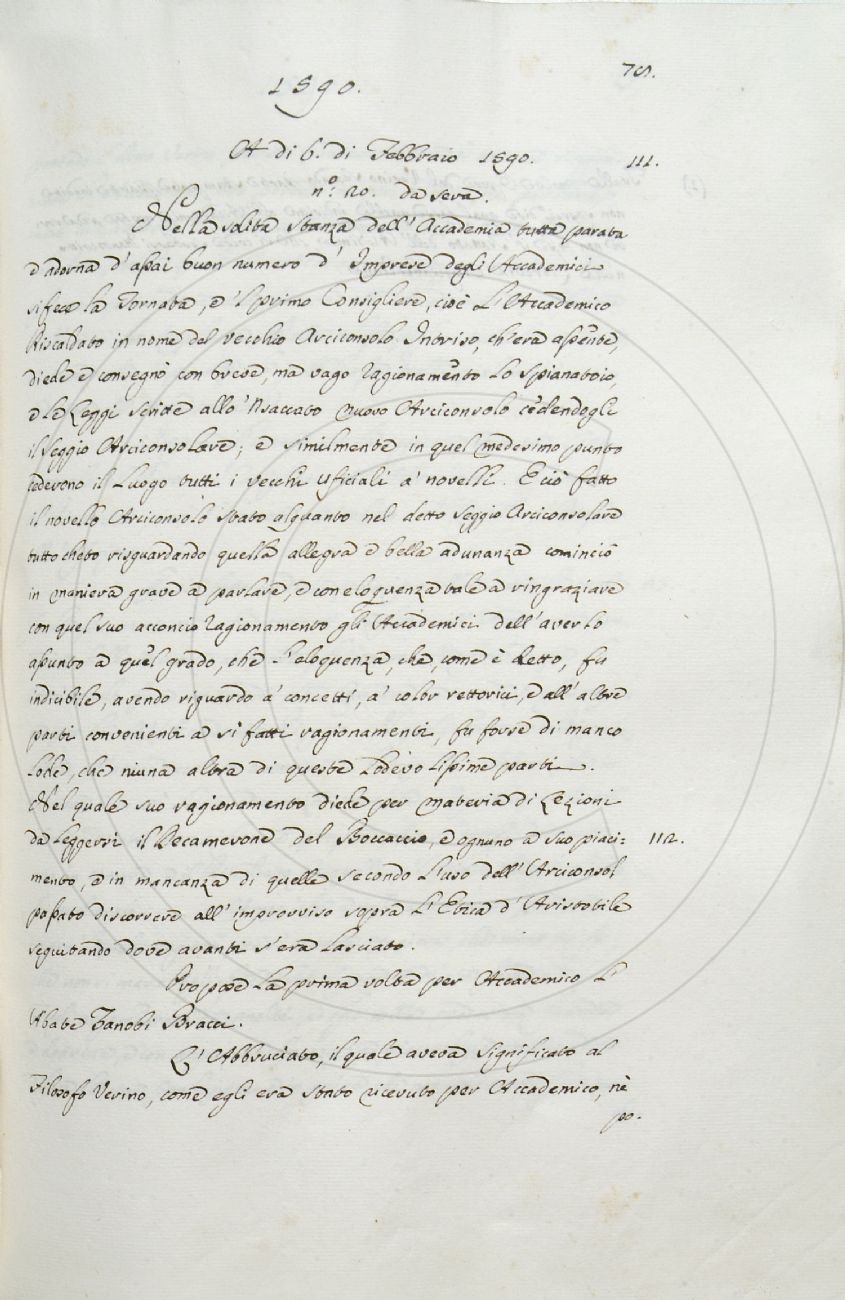 1590.
75.
A dì 6. di Febbraio 1590.
111.
n.º 20. da sera.
Nella solita stanza dell'Accademia tutta parata
e adorna d'assai buon numero d'Imprese degli Accademici
si fece la Tornata, e 'l primo Consigliere, cioè l'Accademico
Riscaldato in nome del vecchio Arciconsolo Intriso, ch'era assente,
diede e consegnò con breve, ma vago ragionamento lo Spianatoio,
e le Leggi scritte allo 'Nsaccato nuovo Arciconsolo cedendogli
il seggio Arciconsolare; e similmente in quel medesimo punto
cederono il Luogo tutti i vecchi Uficiali a' novelli. E ciò fatto
il novello Arciconsolo stato alquanto nel detto seggio Arciconsolare
tutto cheto risguardando quella allegra e bella adunanza cominciò
in maniera grave a parlare, e con eloquenza tale a ringraziare
con quel suo acconcio ragionamento gli Accademici dell'averlo
assunto a quel grado, che l'eloquenza, che, come è detto, fu
indicibile, avendo riguardo a' concetti, a' color rettorici, e all'altre
parti convenienti a sì fatti ragionamenti, fu forse di manco
lode, che niuna altra di queste Lodevolissime parti.
Nel quale suo ragionamento diede per materia di Lezioni
da leggersi il Decamerone del Boccaccio, e ognuno a suo piaci=
112.
mento, e in mancanza di quelle secondo l'uso dell'Arciconsol
passato discorrere all'improvviso sopra l'Etica d'Aristotile
seguitando dove avanti s'era lasciato.
Propose la prima volta per Accademico l'
Abate Zanobi Bracci.
L'Abbruciato, il quale aveva significato al
Filosofo Verino, come egli era stato ricevuto per Accademico, nè
po.